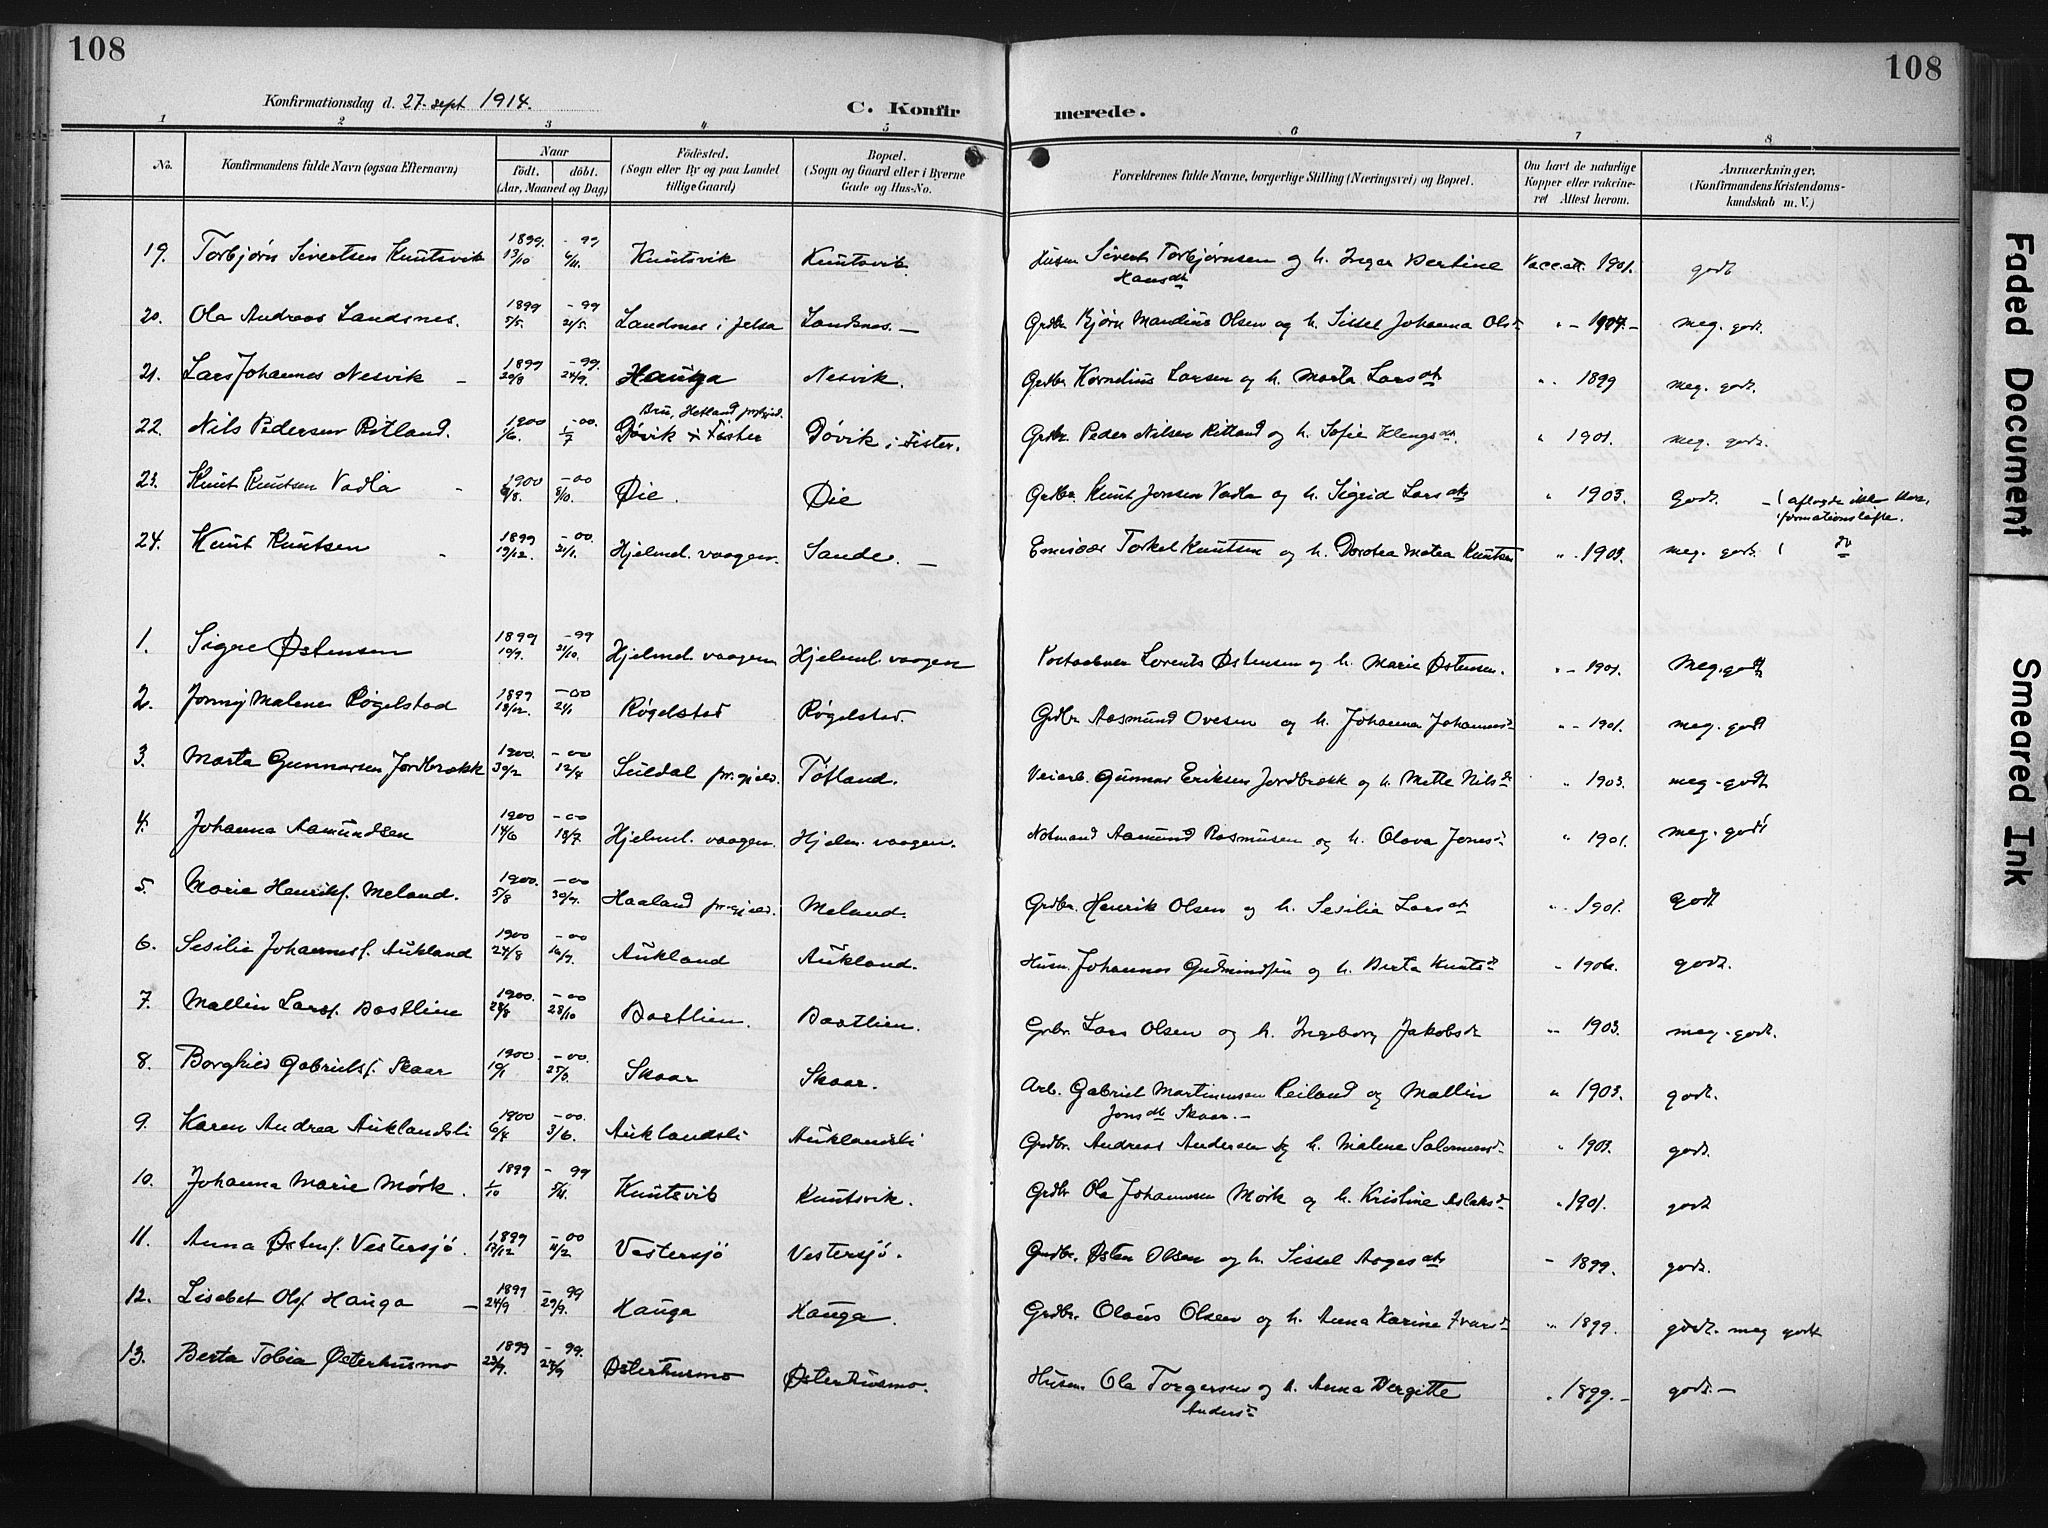 108
108
Konfirmationsdag d. 27. sept 1914.
C. Konfir merede.
1 2 3 4 5 6 7 8
No.
Konfirmandens fulde Navn (ogsaa Efternavn)
Naar
födt. döbt.
(Aar, Maaned og Dag)
Födested.
(Sogn eller By og paa Landet
tillige Gaard)
Bopæl.
(Sogn og Gaard eller i Byerne
Gade og Hus-No.
Forældrenes fulde Navne, borgerlige Stilling (Næringsvei) og Bopæl.
Om havt de naturlige
Kopper eller vakcine-
ret Attest herom.
Anmerkninger,
(Konfirmandens Kristendoms-
kundskab m. V.)
19. Torbjørn Sivertsen Knutsvik 1899. 13/10 - 99 4/11. Knutsvik Knutsvik. Husm Sivert Torbjørnsen og h. Inger Bertine Hansdtr Vacc.att. 1901. godt
20. Ola Andreas Landsnes. 1899 5/5. - 99 21/5. Landsnes i Jelsa Landsnes. - Grdbr Bjørn Mandius Olsen og h. Sissel Johanna Olsd " - 1907. - meg. godt.
21. Lars Johannes Nesvik - 1899 20/8 - 99. 24/9. Hauga Nesvik. Grdbr Kornelius Larsen og h. Marta Larsdtr " 1899 meg. godt.
22. Nils Pedersen Ritland. 1900 1/6. - 00. 1/7 Bru, Hetland prgjld. Døvik i Fister Døvik i Fister. Grdbr. Peder Nilsen Ritland og h. Sofie Klengsdtr. " 1901. meg. godt.
23. Knut Knutsen Vadla - 1900 9/8. - 00 8/10. Øie. Øie Grdbr. Knut Jonsen Vadla og h. Sigrid Larsdtr " 1903. Godt. - ( aflagde ikke kon.
formationsløfte.
24. Knut Knutsen - 1899 19/12. - 00. 21/1. Hjelmel. vaagen. Sande. - Torkel Knutsen og h. Dorotea Matea Knutsen " 1903. meg. godt. ( do
1. Signe Østensen 1899 19/9. - 99 21/10. Hjelmel. vaagen Hjelmel. vaagen Postaabner Lorents Østensen og h. Marie Østensen. " - 1901. Meg. godt
2. Jonny Malene Røgelstad 1899 18/12. - 00 21/1 Røgelstad Røgelstad. Grdbr. Aasmund Ovesen og h. Johanna Johannesd " - 1901. meg. godt
3. Marta Gunnarsen Jordbrekk 1900. 30/2 - 00 12/4 Suldal pr.gjeld. Tøtland. Veiarb. Gunnar Eriksen Jordbrekk og h. Mette Nilsd " 1903. meg - godt
4. Johanna Aamundsen 1900 14/6 - 00 18/7. Hjelmel. vaagen. Hjelm. vaagen. Notmand Aamund Rasmusen og h. Olava Jonesd " 1901. meg. godt
5. Marie Henriks. Meland. 1900. 5/8 - 00 30/9. Haaland pr.gjeld. Meland. Grdbr. Henrik Olsen og h. Sesilia Larsdtr " 1901. Godt
6. Sesilie Johannesf. Aukland 1900 24/8 - 00 16/9. Aukland Aukland. Husm. Johannes Gudmundsen og h. Berta Knutsd " 1906. godt.
7. Mallin Larsf. Bastlien 1900. 28/8 - 00 28/10 Bastlien. Bastlien. Grbr. Lars Olsen og h. Ingeborg Jakobsdt " 1903. meg - godt.
8. Borghild Gabrielsf. Skaar 1900. 19/1 - 00. 25/3. Skaar Skaar. Arb. Gabriel Martinussen Reiland og Mallin Jonsdt Skaar. - " 1903. godt.
9. Karen Andrea Auklandsli 1900 6/4 - 00. 3/6. Auklandsli Auklandsli Grdbr. Andreas Andersen og h. Malene Salomonsd " 1903. godt.
10. Johanna Marie Mørk. 1899 1/10 - 99 5/11. Knutsvik Knutsvik. Grdbr Ola Johannesen Mørk og h. Kristine Aslaksd " 1901. godt
11. Anna Østenf. Vestersjø. 1899 17/12 - 00 11/2 Vestersjø Vestersjø. Grdbr. Østen Olsen og h. Sissel Aagesdtr - 1899. godt.
12. Lisebet Olsf. Hauga - 1899 24/9 - 99 29/9. Hauga Hauga. Grdbr. Olaus Olsen og h. Anna Karine Ivarsd " 1899. godt. meg godt
13. Berta Tobia Østerhusmo 1899 23/9. - 99. 24/9 Østerhusmo Østerhusmo. Husm. Ola Torgersen og h. Anna Bergitte Andersd " 1899. - godt. -
Faded Document
Smeared Ink